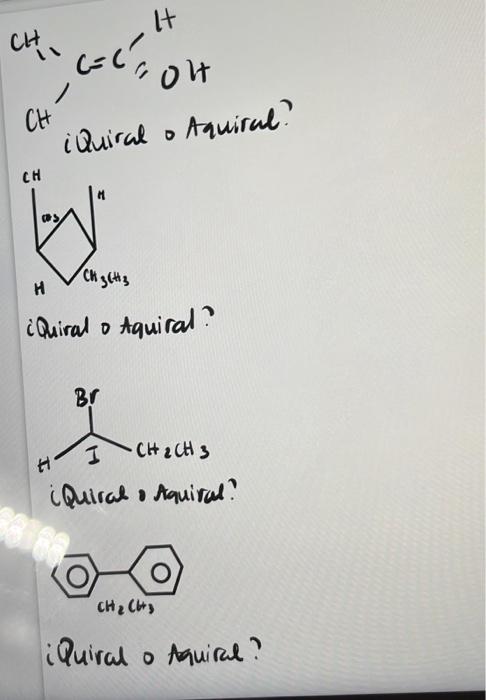 CH H
C=C
CH OH
¿Quiral o Aquiral?
CH
H
H CH3CH3
¿Quiral o Aquiral?
Br
H I CH2CH3
¿Quiral o Aquiral?
CH2CH3
¿Quiral o Aquiral?